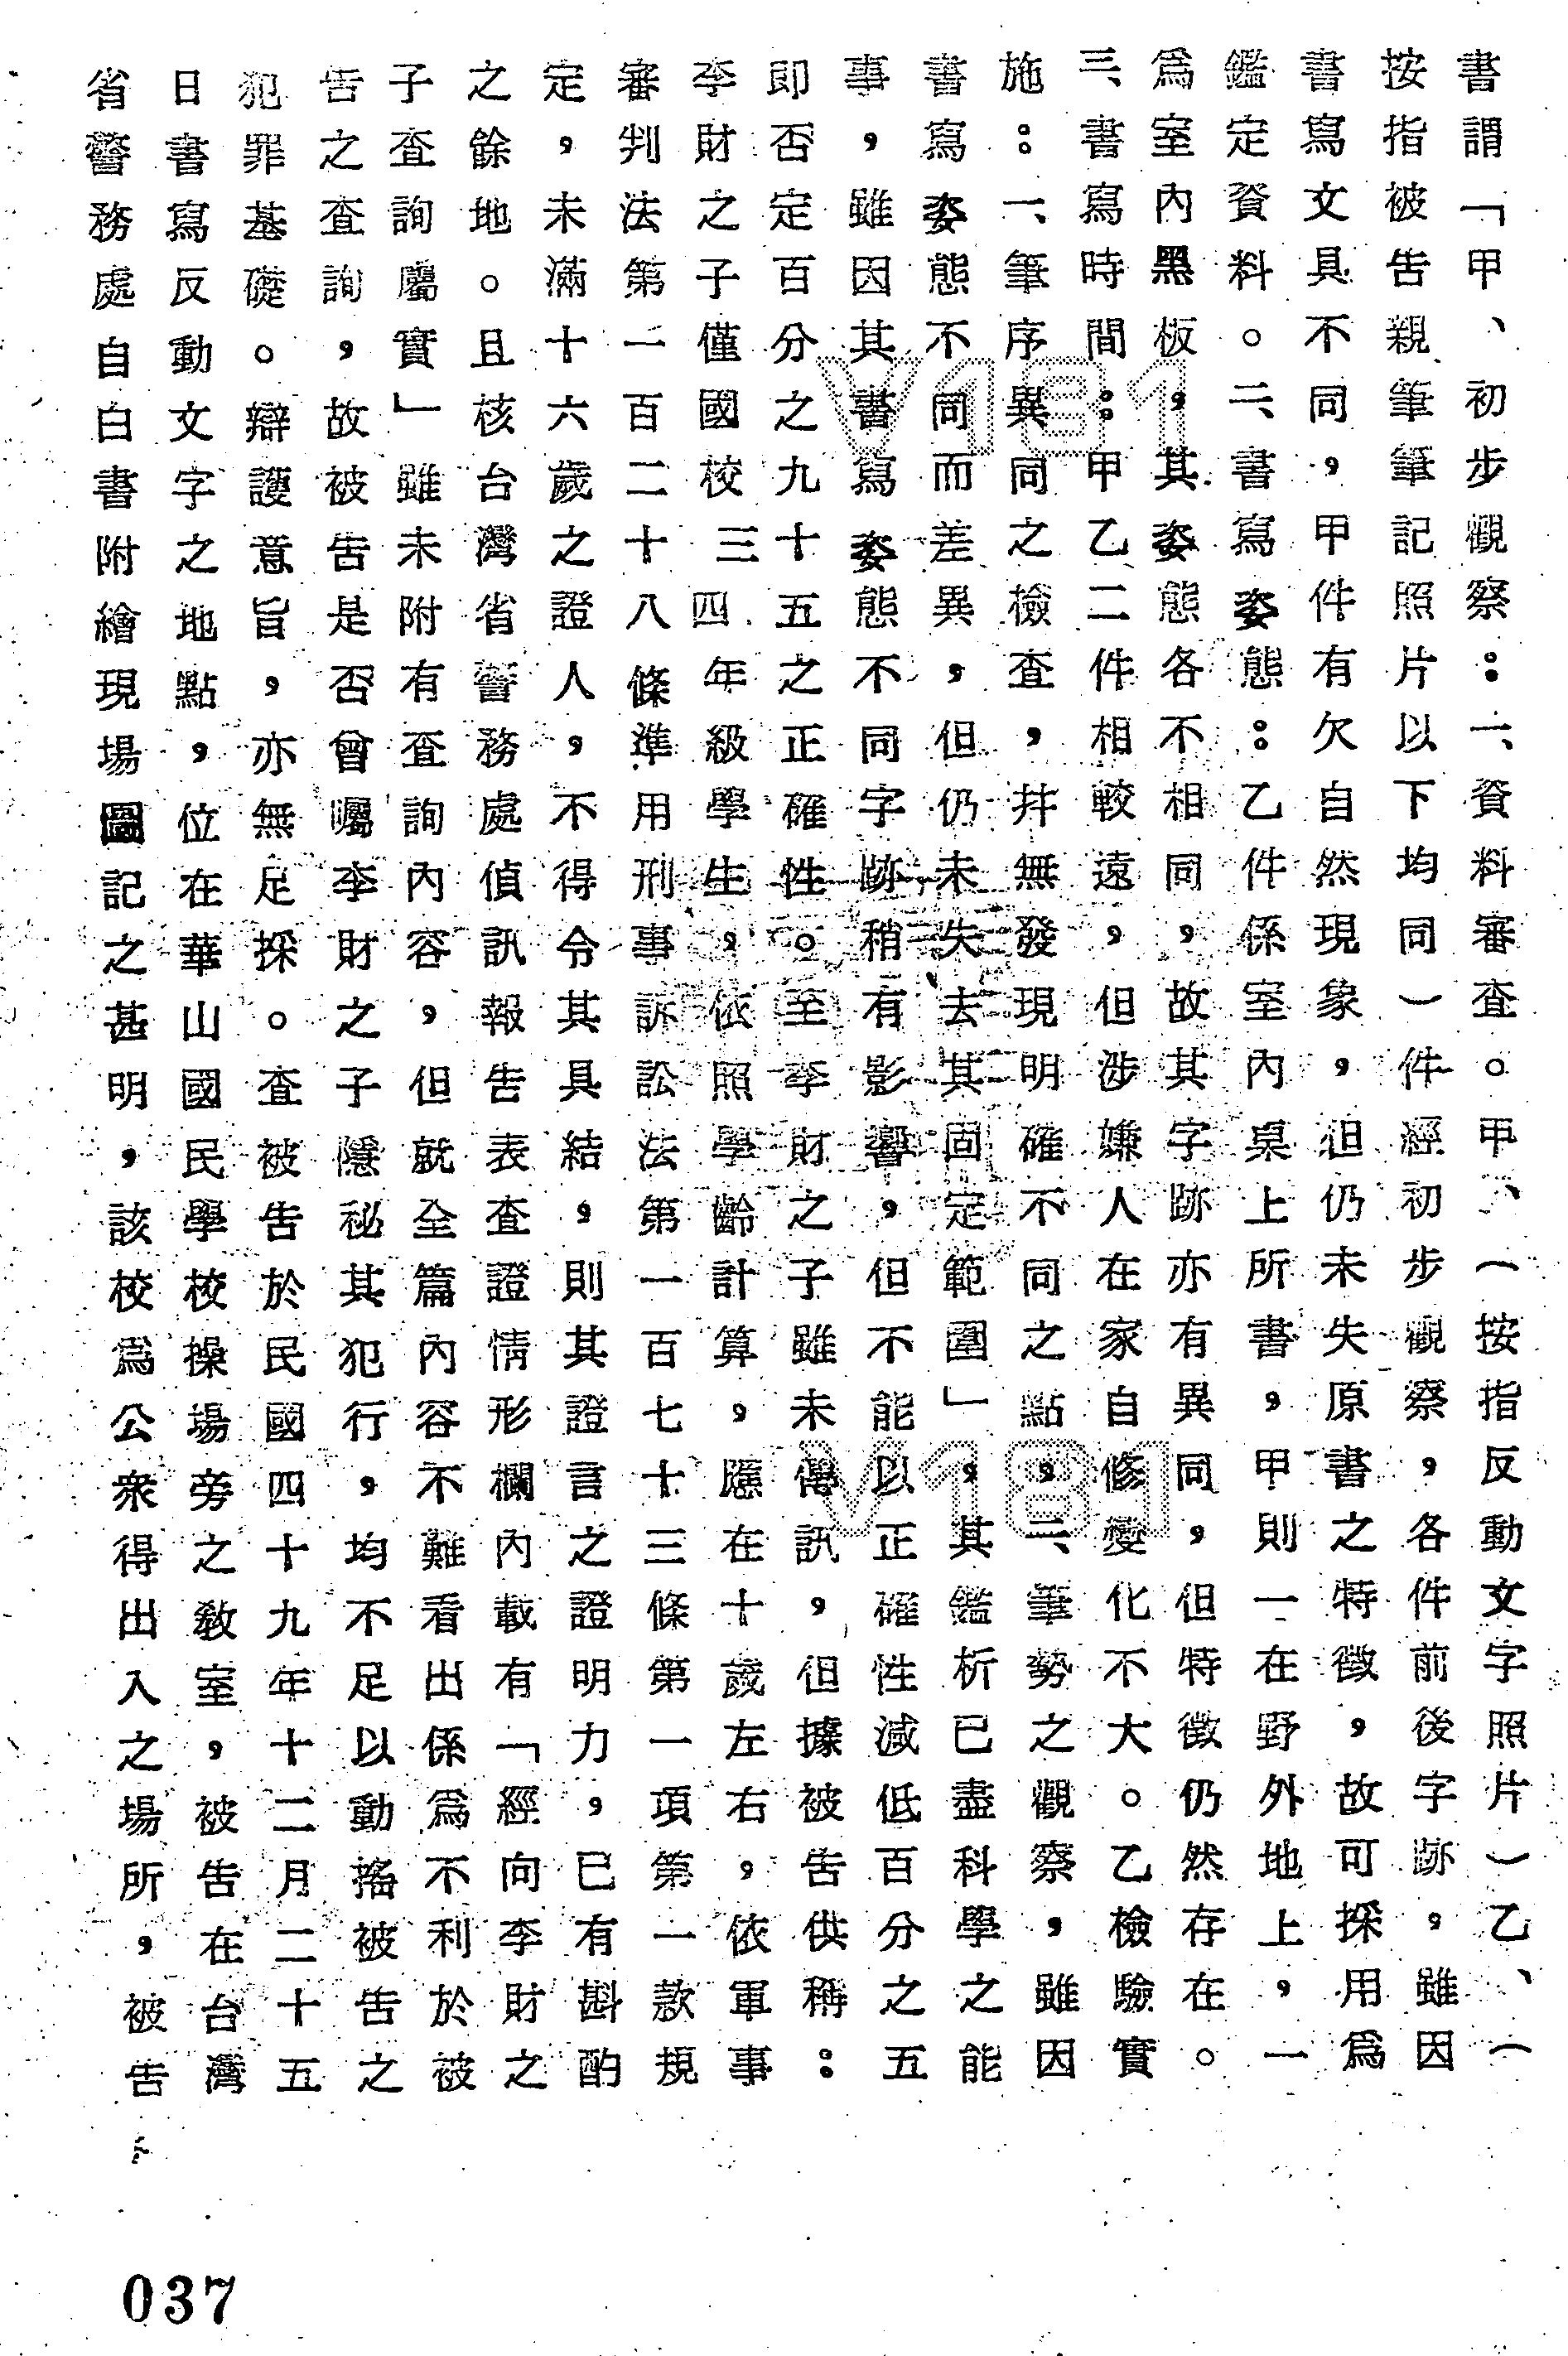 書謂「甲、初步觀察：一、資料審查。甲、（按指反動文字照片）乙、（
按指被告親筆筆記照片以下均同）件經初步觀察，各件前後字跡，雖因
書寫文具不同，甲件有欠自然現象，但仍未失原書之特徵，故可採用爲
鑑定資料。二、書寫姿態：乙件係室內桌上所書，甲則一在野外地上，一
爲室內黑板，其姿態各不相同，故其字跡亦有異同，但特徵仍然存在。
三、書寫時間：甲乙二件相較遠，但涉嫌人在家自修，變化不大。乙檢驗實
施：一、筆序異同之檢查，并無發現明確不同之點，二、筆勢之觀察，雖因
書寫姿態不同而差異，但仍未失去其固定範圍」，其鑑析已盡科學之能
事，雖因其書寫姿態不同字跡稍有影響，但不能以正確性減低百分之五
即否定百分之九十五之正確性。至李財之子雖未傳訊，但據被告供稱：
李財之子僅國校三四年級學生，依照學齡計算，應在十歲左右，依軍事
審判法第一百二十八條準用刑事訴訟法第一百七十三條第一項第一款規
定，未滿十六歲之證人，不得令其具結，則其證言之證明力，已有斟酌
之餘地。且核台灣省警務處偵訊報告表查證情形欄內載有「經向李財之
子查詢屬實」雖未附有查詢內容，但就全篇內容不難看出係爲不利於被
告之查詢，故被告是否曾囑李財之子隱秘其犯行，均不足以動搖被告之
犯罪基礎。辯護意旨，亦無足採。查被告於民國四十九年十二月二十五
日書寫反動文字之地點，位在華山國民學校操場旁之教室，被告在台灣
省警務處自白書附繪現場圖記之甚明，該校爲公衆得出入之場所，被告
037
V181
V181